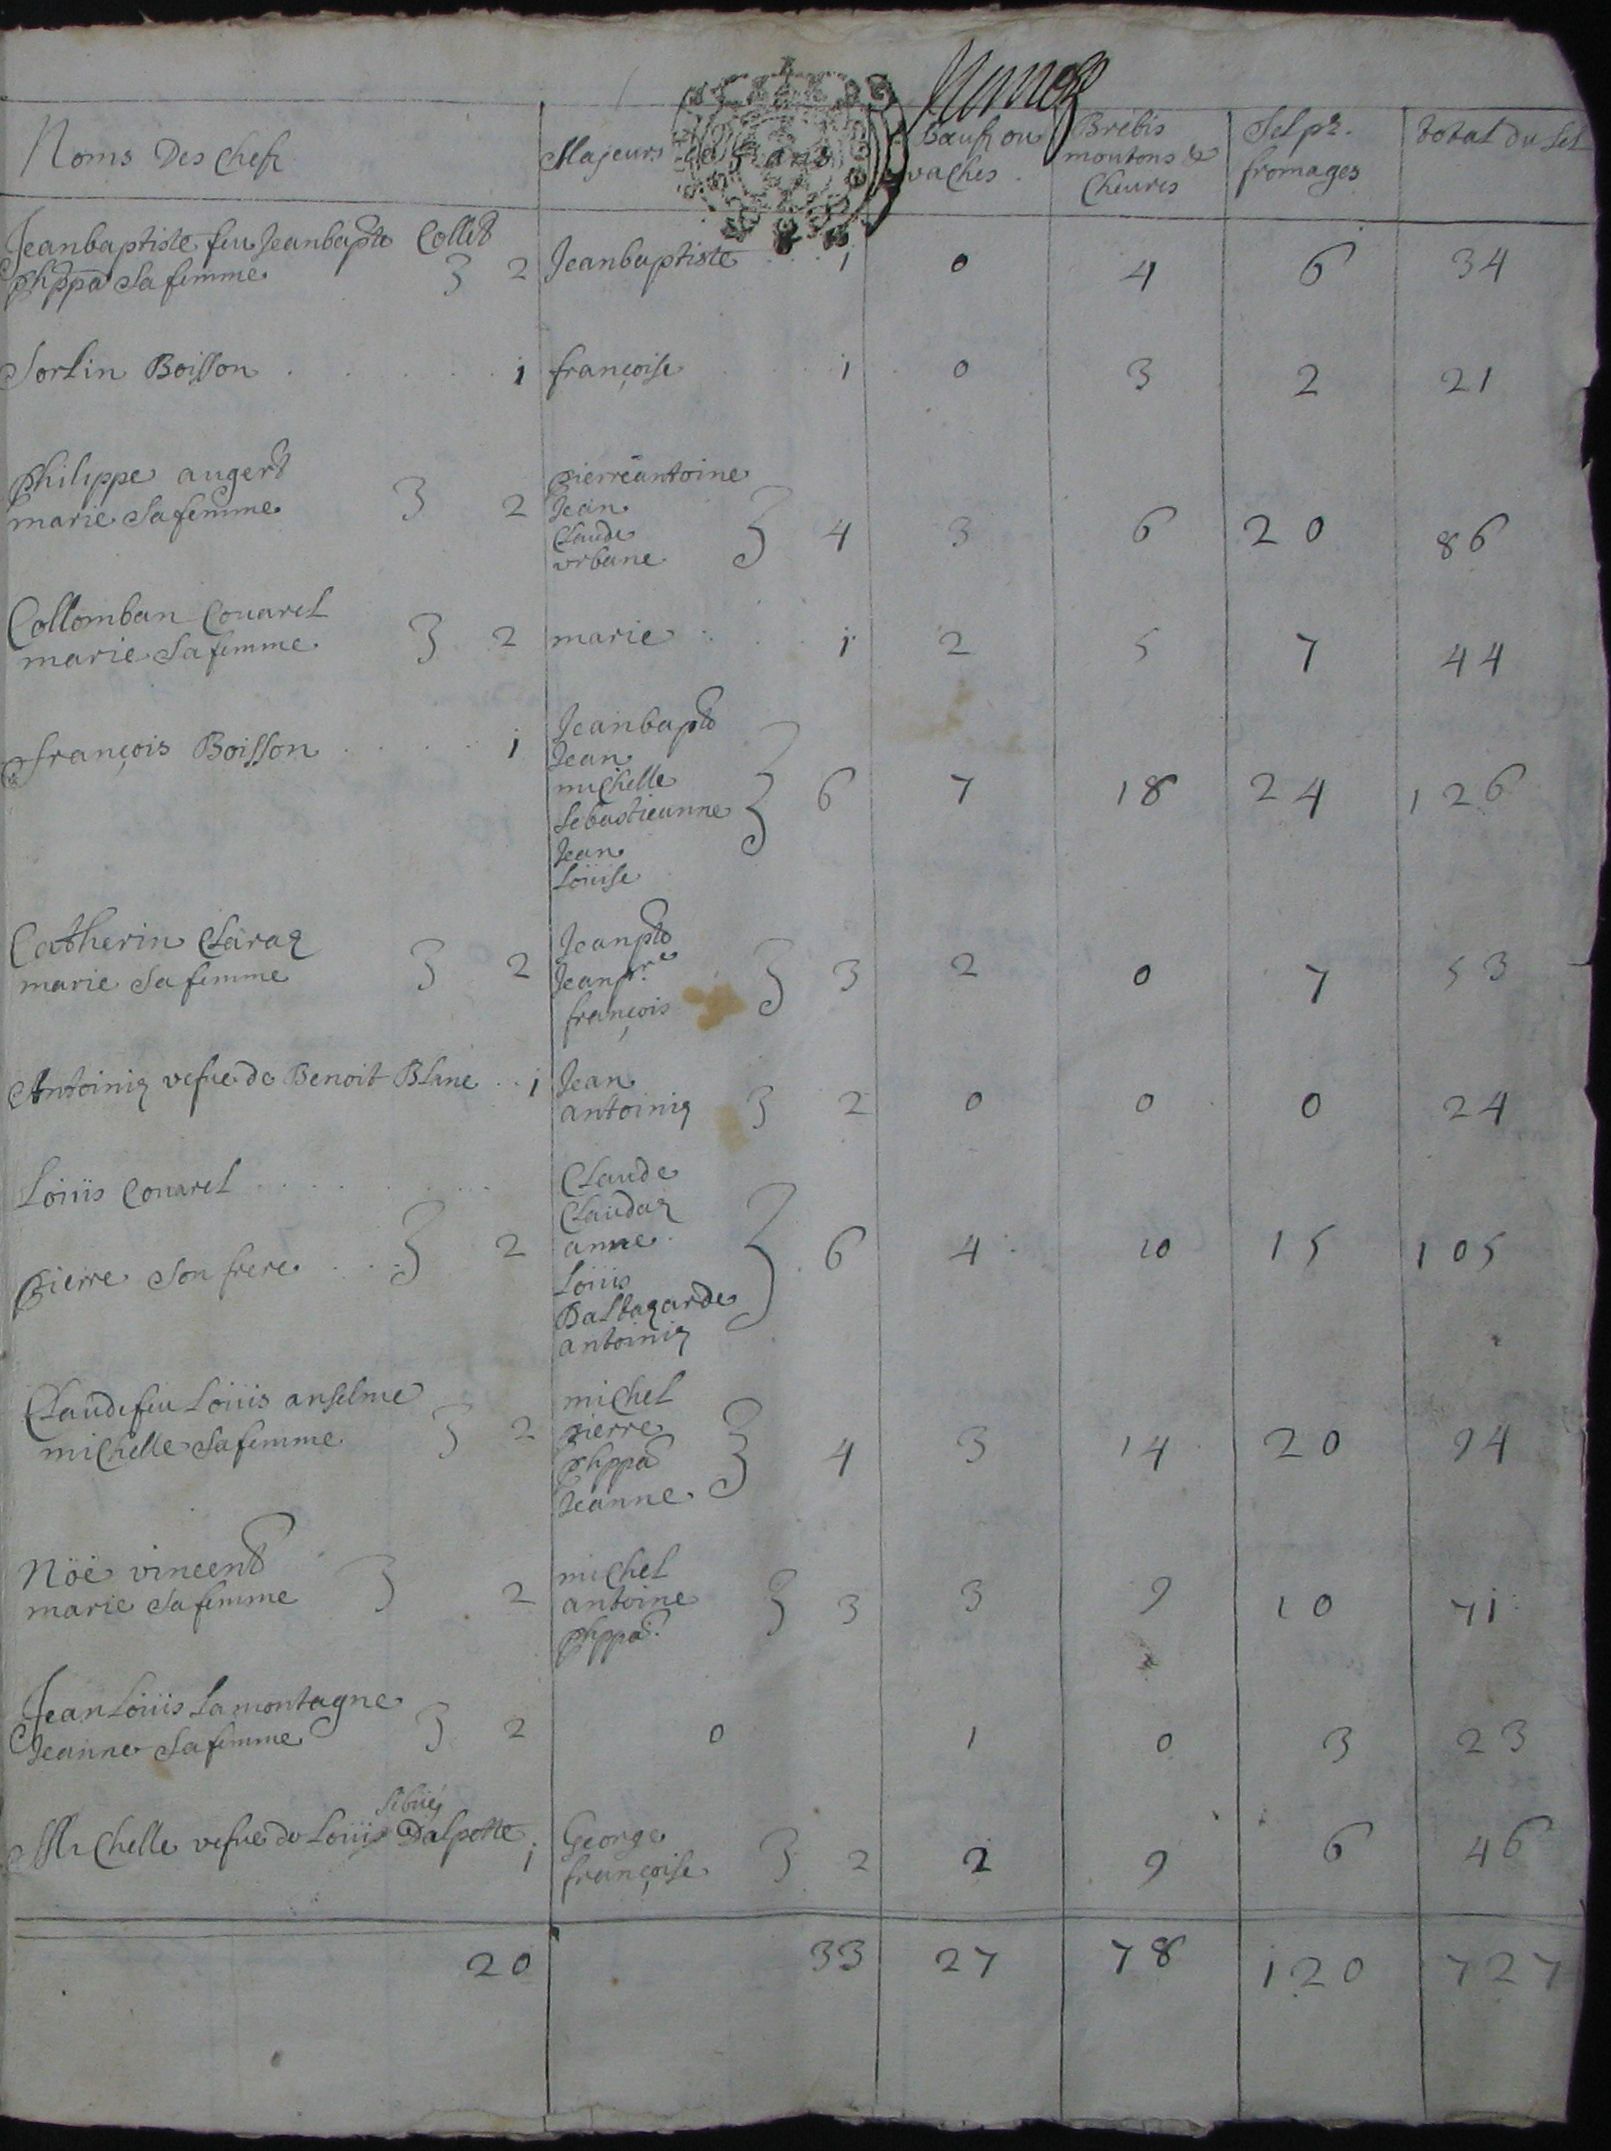 Noms Des Chefs
Majeurs de 5 ans
Bœufs ou
vaches
Brebis
moutons &
Cheures
Sel pr.
fromages
total du Sel
Jeanbaptiste feu Jeanbapte Collet
phppa Sa femme 2 Jeanbaptiste 1 0 4 6 34
Sorlin Boisson 1 françoise 1 0 3 2 21
Philippe augert
marie Sa femme 2
pierre antoine
Jean
Claude
vrbane
4 3 6 20 86
Collomban Couarel
marie Sa femme 2 marie 1 2 5 7 44
françois Boisson 1
Jeanbapte
Jean
michelle
Sebastieanne
Jean
Loüise
6 7 18 24 126
Catherin Claraz
marie Sa femme 2
Jeanpte
Jeanpre
françois
3 2 0 7 53
Antoiniz vefue de Benoit Blanc 1
Jean
antoiniz
2 0 0 0 24
Loüis Couarel
pierre Son frere 2
Claude
Claudaz
anne
Loüis
Baltazarde
antoiniz
6 4 10 15 105
Claude feu Loüis anselme
michelle Sa femme 2
michel
pierre
phppa
Jeanne
4 3 14 20 94
Nöé vincent
marie Sa femme 2
michel
antoine
phppa
3 3 9 10 71
Jean Loüis Lamontagne
Jeanne Sa femme 2 0 1 0 3 23
Michelle vefue de Loüis Dalpette 1
George
françoise
2 2 9 6 46
20 33 27 78 120 727